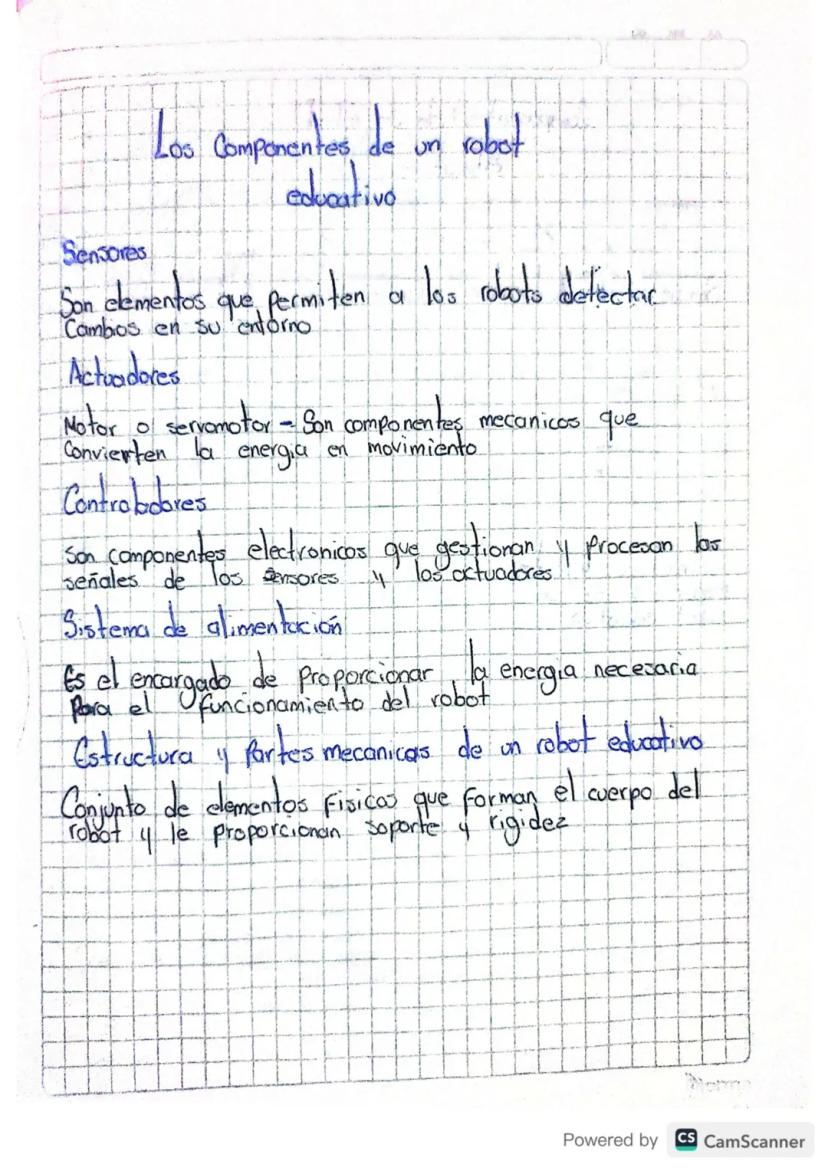 Los Componentes de un robot
educativo
Sensores
Son elementos que permiten a los robots detectar
Cambos en su entorno
Actuadores
Motor o servomotor - Son componentes mecanicos que
Convierten la energia en movimiento
Controladores
Son componentes electronicos que gestionan y procesan las
señales de los sensores y los actuadores
Sistema de alimentación
Es el encargado de proporcionar la energia necesaria
Para el funcionamiento del robot
Estructura y Partes mecanicas de un robot educativo
Conjunto de elementos Fisicos que forman el cuerpo del
robot y le proporcionan soporte y rigidez
Norma
Powered by CS CamScanner